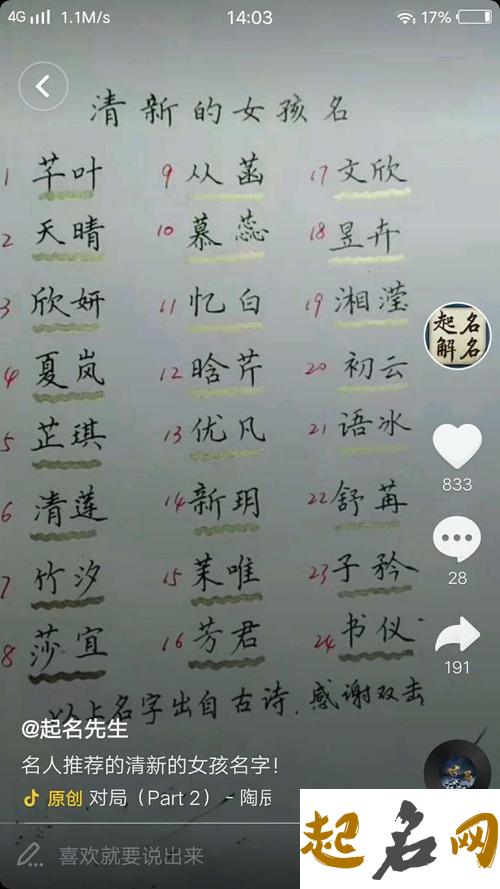 4G 1.1M/s 14:03 17%
清新的女孩名
1 芊叶 9 从菡 17 文欣
2 天晴 10 慕蕊 18 昱卉
3 欣妍 11 忆白 19 湘滢
4 夏岚 12 晗芹 20 初云
5 芷琪 13 优凡 21 语冰
6 清莲 14 新玥 22 舒苒
7 竹汐 15 茉唯 23 子矜
8 莎宜 16 芳君 24 书仪
以上名字出自古诗.感谢双击
起名
解名
833
28
191
@起名先生
名人推荐的清新的女孩名字！
原创 对局（Part 2） - 陶辰
喜欢就要说出来
起名网